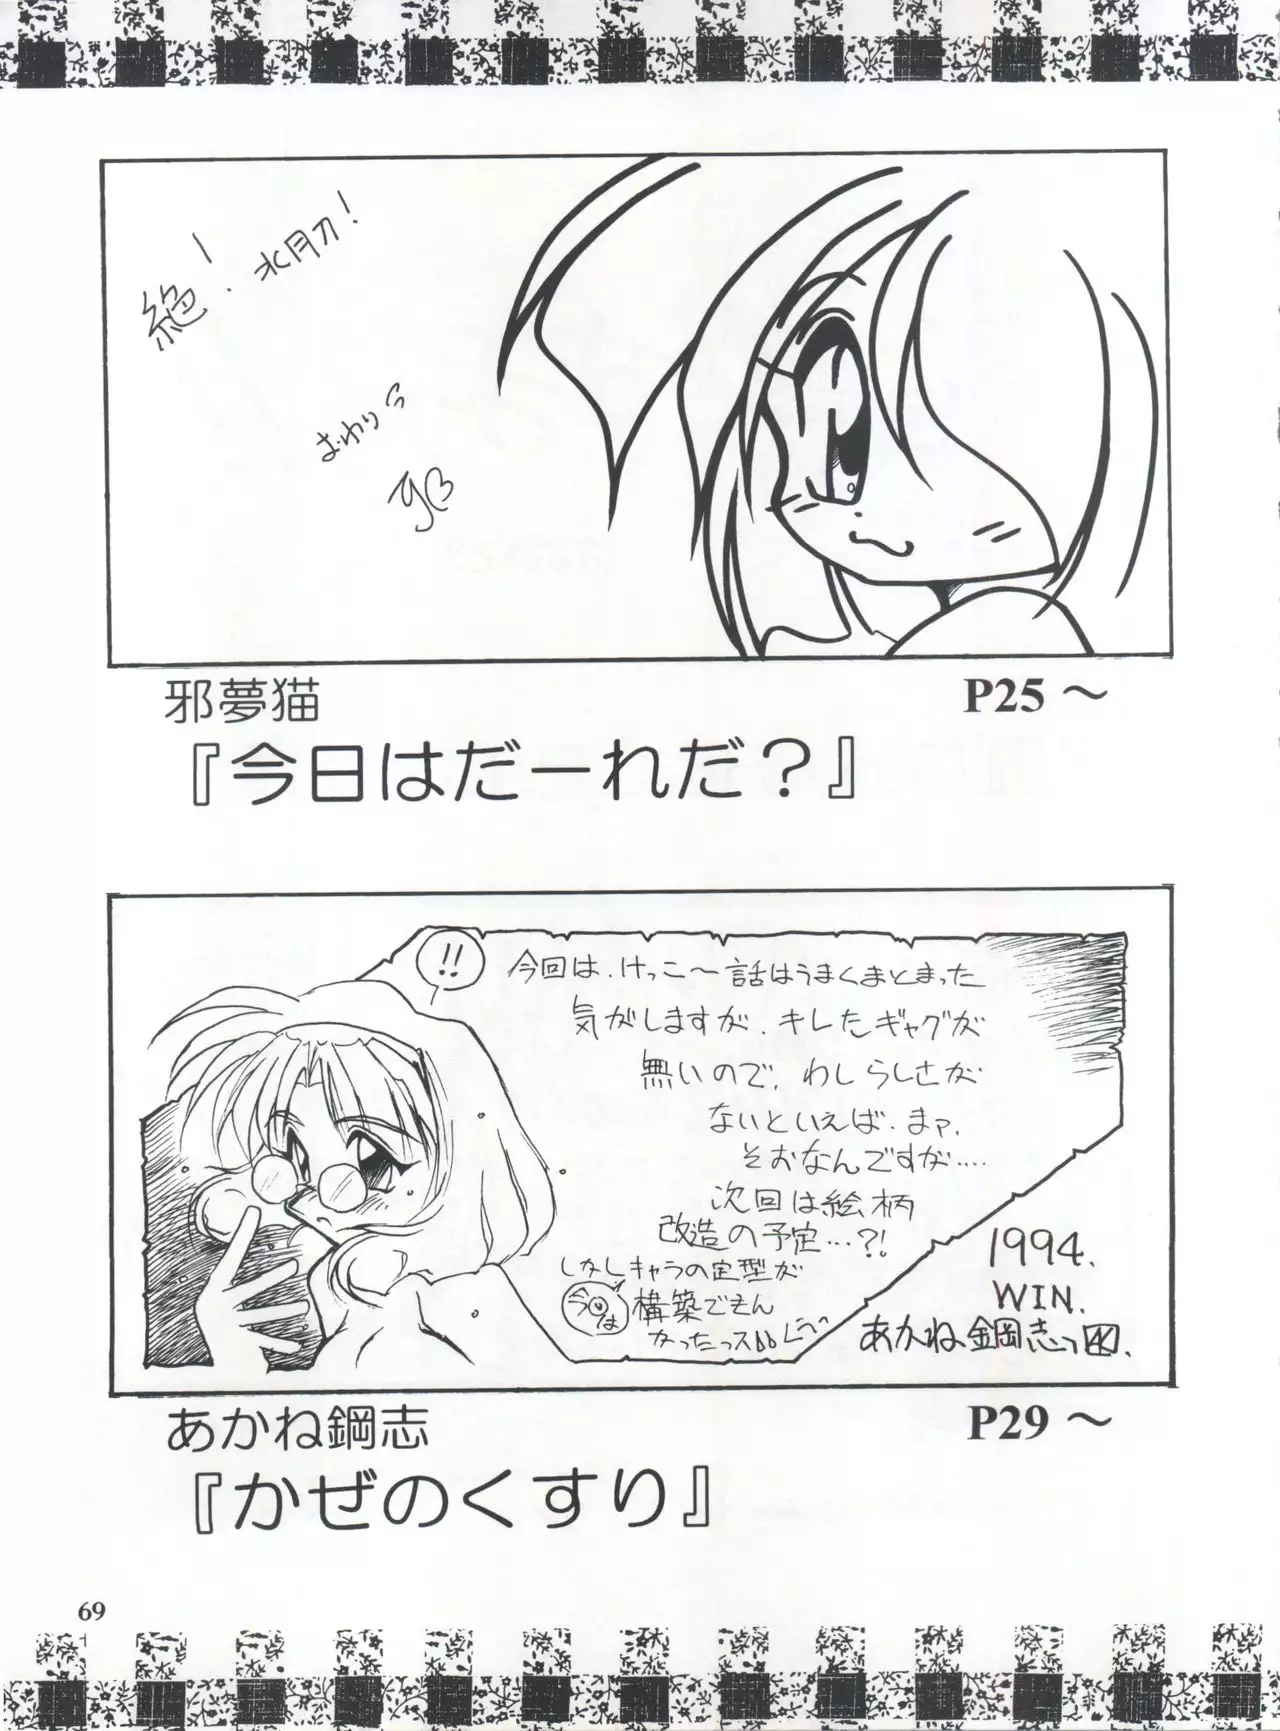 絶!
おわり
邪夢猫
P25 ～
『今日はだーれだ？』
!!
今回は、けっこ～話はうまくまとまった
気がしますが、キレたギャグが
無いので、わしらしさが
ないといえば、まァ、
そおなんですが……
次回は絵柄
改造の予定…?!
しかしキャラの定型が
今は
構築できん
かったっス
1994.
WIN.
あかね鋼志
あかね鋼志
P29 ～
『かぜのくすり』
69